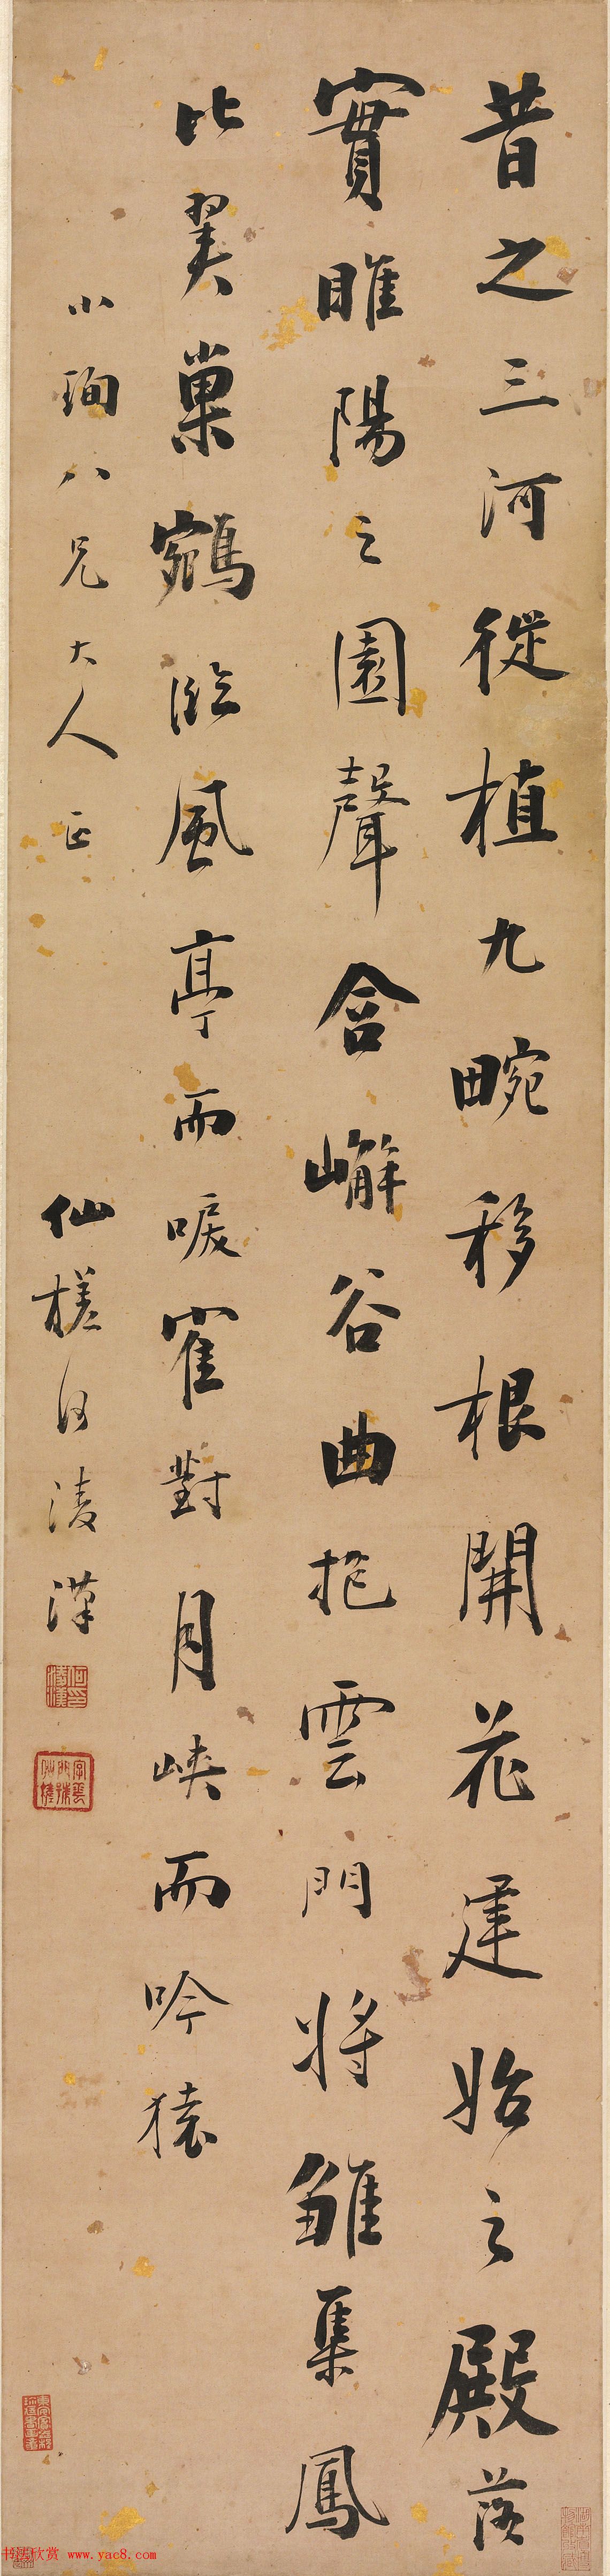 昔之三河徙植九畹移根開花建始之殿落
實睢陽之園聲含嶰谷曲抱雲門將雛集鳳
比翼巢鵷臨風亭而唳隺對月峽而吟猿
小珣八兄大人正
仙槎何淩漢
何印淩漢
字雲門號仙槎
书法欣赏 www.yac8.com